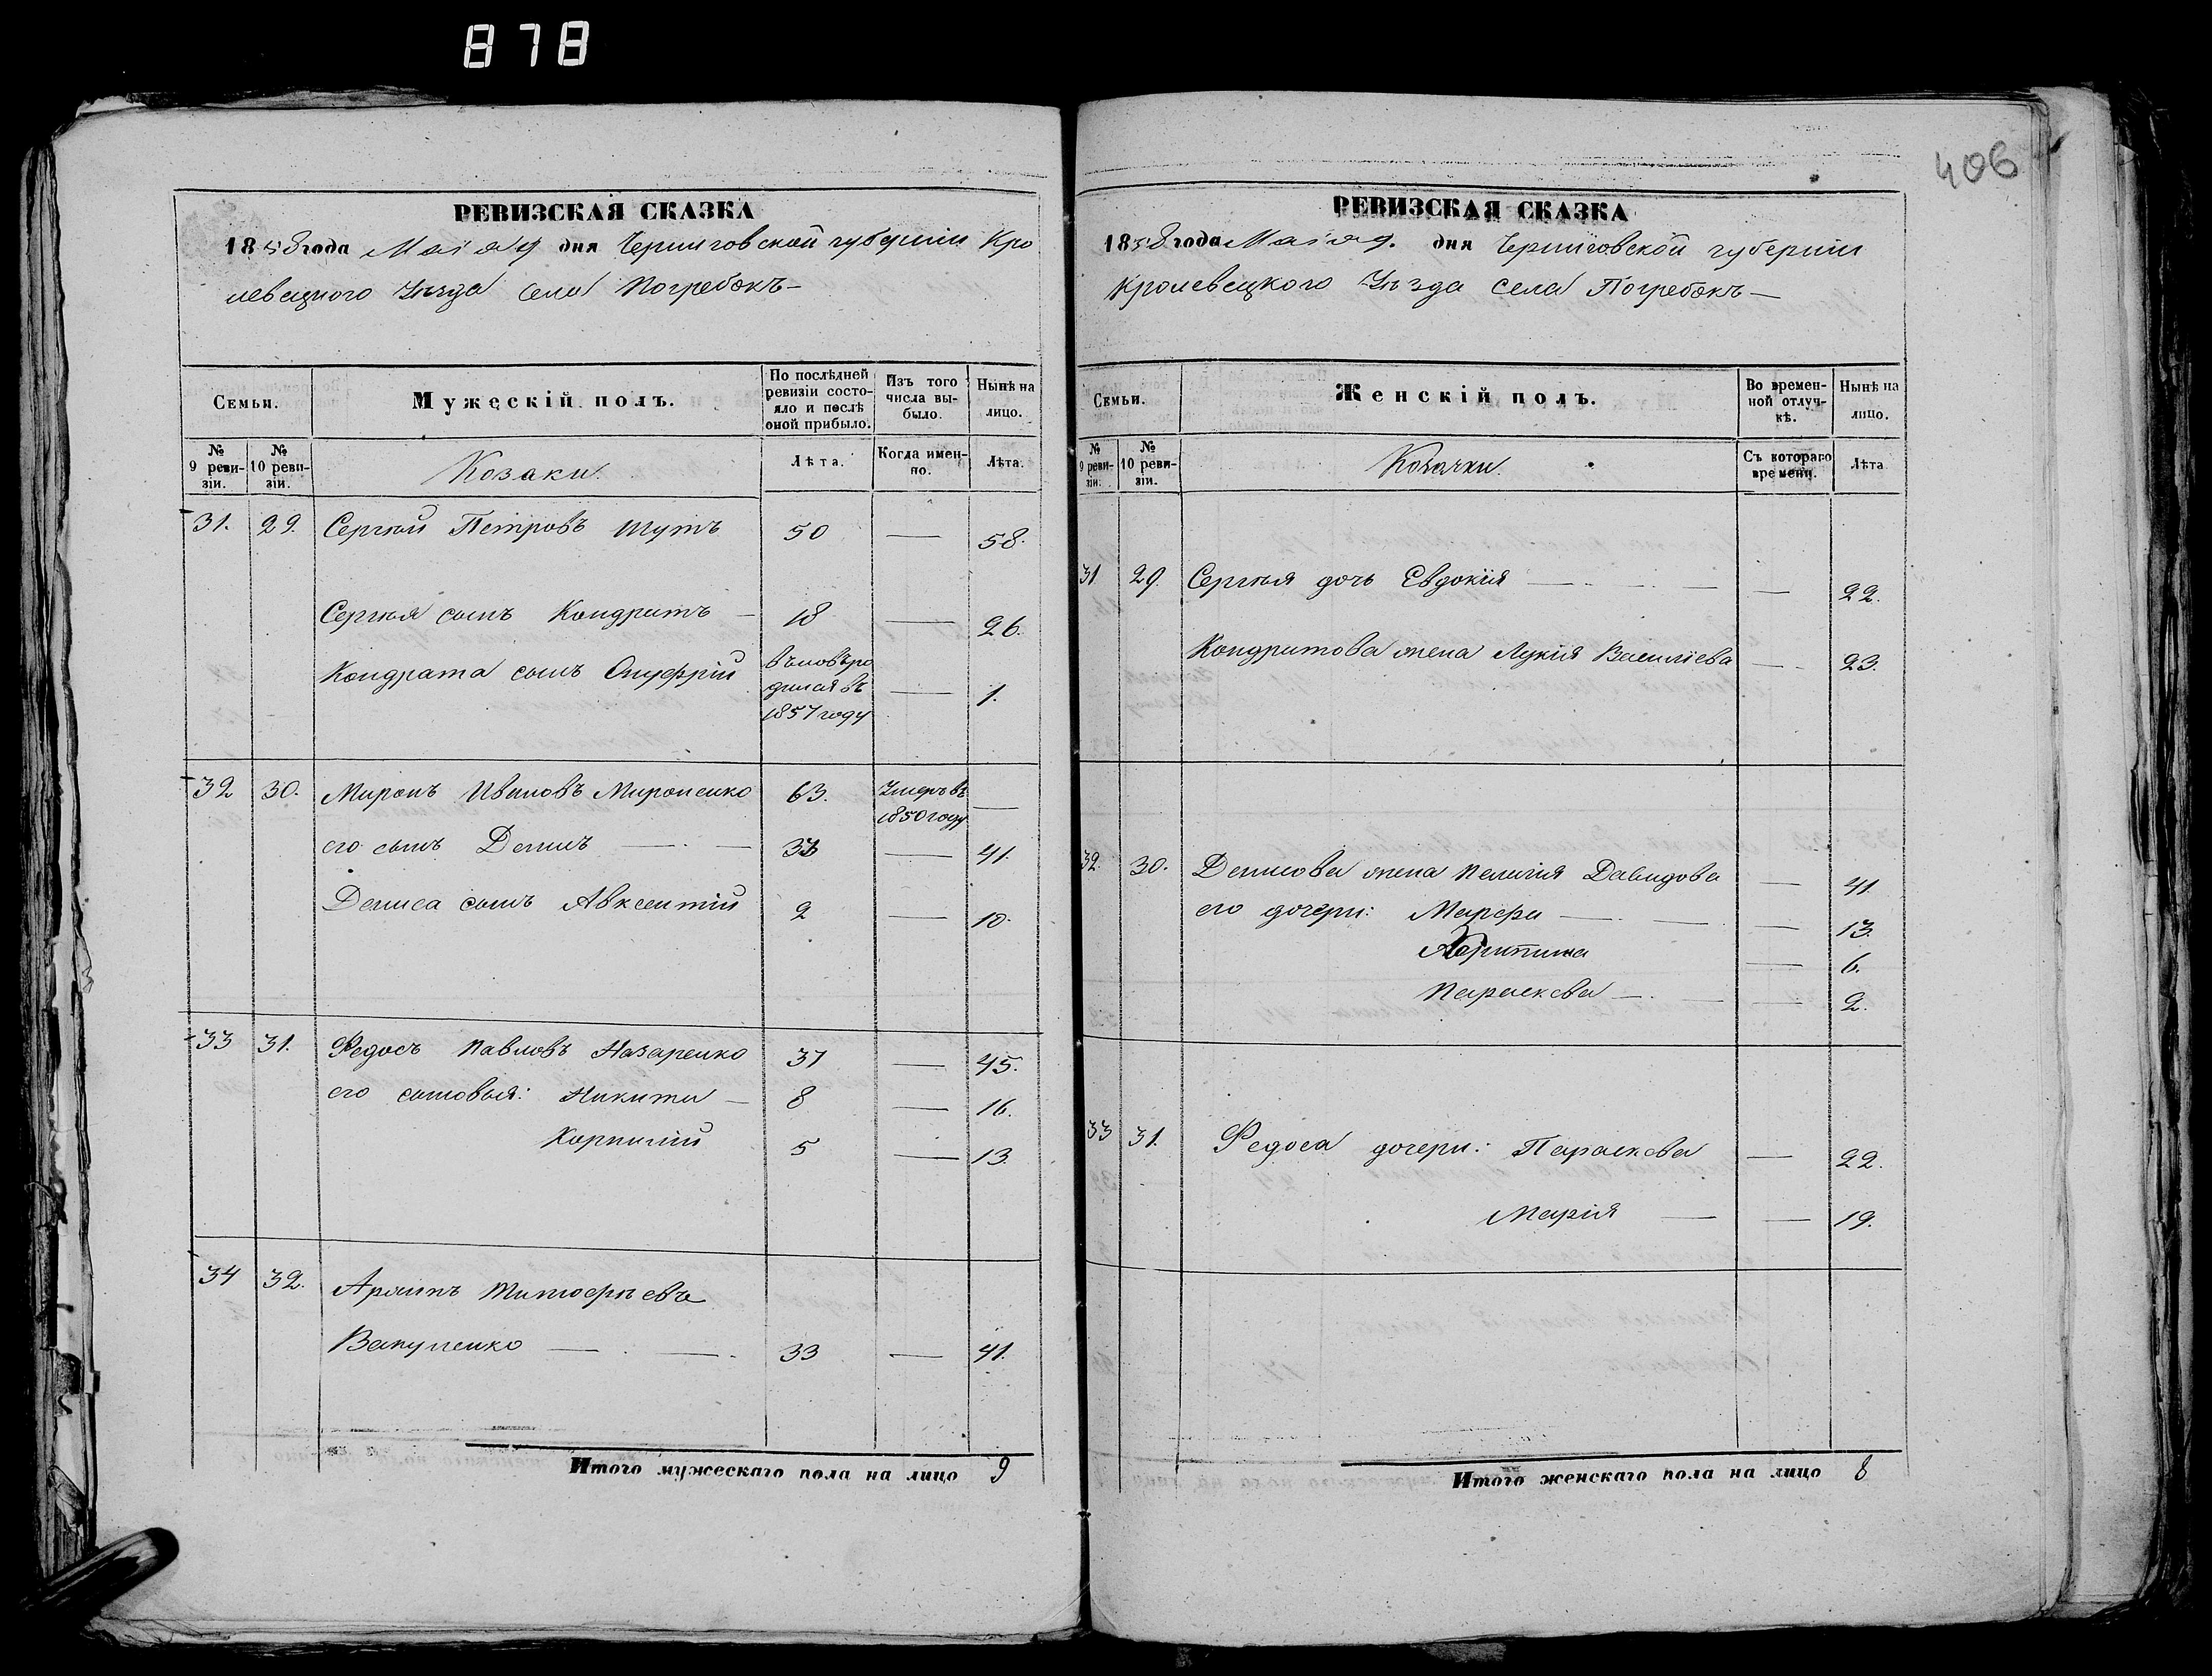 878
406
РЕВИЗСКАЯ СКАЗКА
1858 года Маія 9 дня Черниговской губерніи Кро
левецкого Уѣзда Села Погребокъ —
Семьи.
Мужескій полъ.
По послѣдней ревизіи состояло и послѣ оной прибыло.
Изъ того числа выбыло.
Нынѣ на лицо.
№ 9 ревизіи.
№ 10 ревизіи.
Козаки.
Лѣта.
Когда именно.
Лѣта.
31. 29. Сергѣй Петровъ Шутъ 50 — 58.
Сергѣя сынъ Кондратъ — 18 — 26.
Кондрата сынъ Онуфрій вновь ро
дился въ — 1.
1857 году
32 30. Миронъ Ивановъ Мироненко 63. Умеръ въ —
1850 году
его сынъ Денисъ — 33 — 41.
Дениса сынъ Авксентій 2 — 10.
33 31. Федосъ Павловъ Назаренко 37 — 45.
его сыновья: Никита — 8 — 16.
Корнилій 5 — 13.
34 32. Архипъ Тимофѣевъ
Вакуленко — 33 — 41.
Итого мужескаго пола на лицо 9
РЕВИЗСКАЯ СКАЗКА
1858 года Маія 9. дня Черниговской губерніи
Кролевецкого Уѣзда Села Погребокъ —
Семьи.
Женскій полъ.
Во временной отлучкѣ.
Нынѣ на лицо.
№ 9 ревизіи.
№ 10 ревизіи.
Козачки.
Съ котораго времени.
Лѣта
31 29. Сергѣя дочь Евдокія — — 22.
Кондратова жена Лукія Василіева — 23.
32. 30. Денисова жена Пелагія Давидова — 41
его дочери: Марфа — — 13.
Агрипина — 6.
Параскева — — 2.
33 31. Федоса дочери: Параскева — 22.
Марія — — 19.
Итого женскаго пола на лицо 8